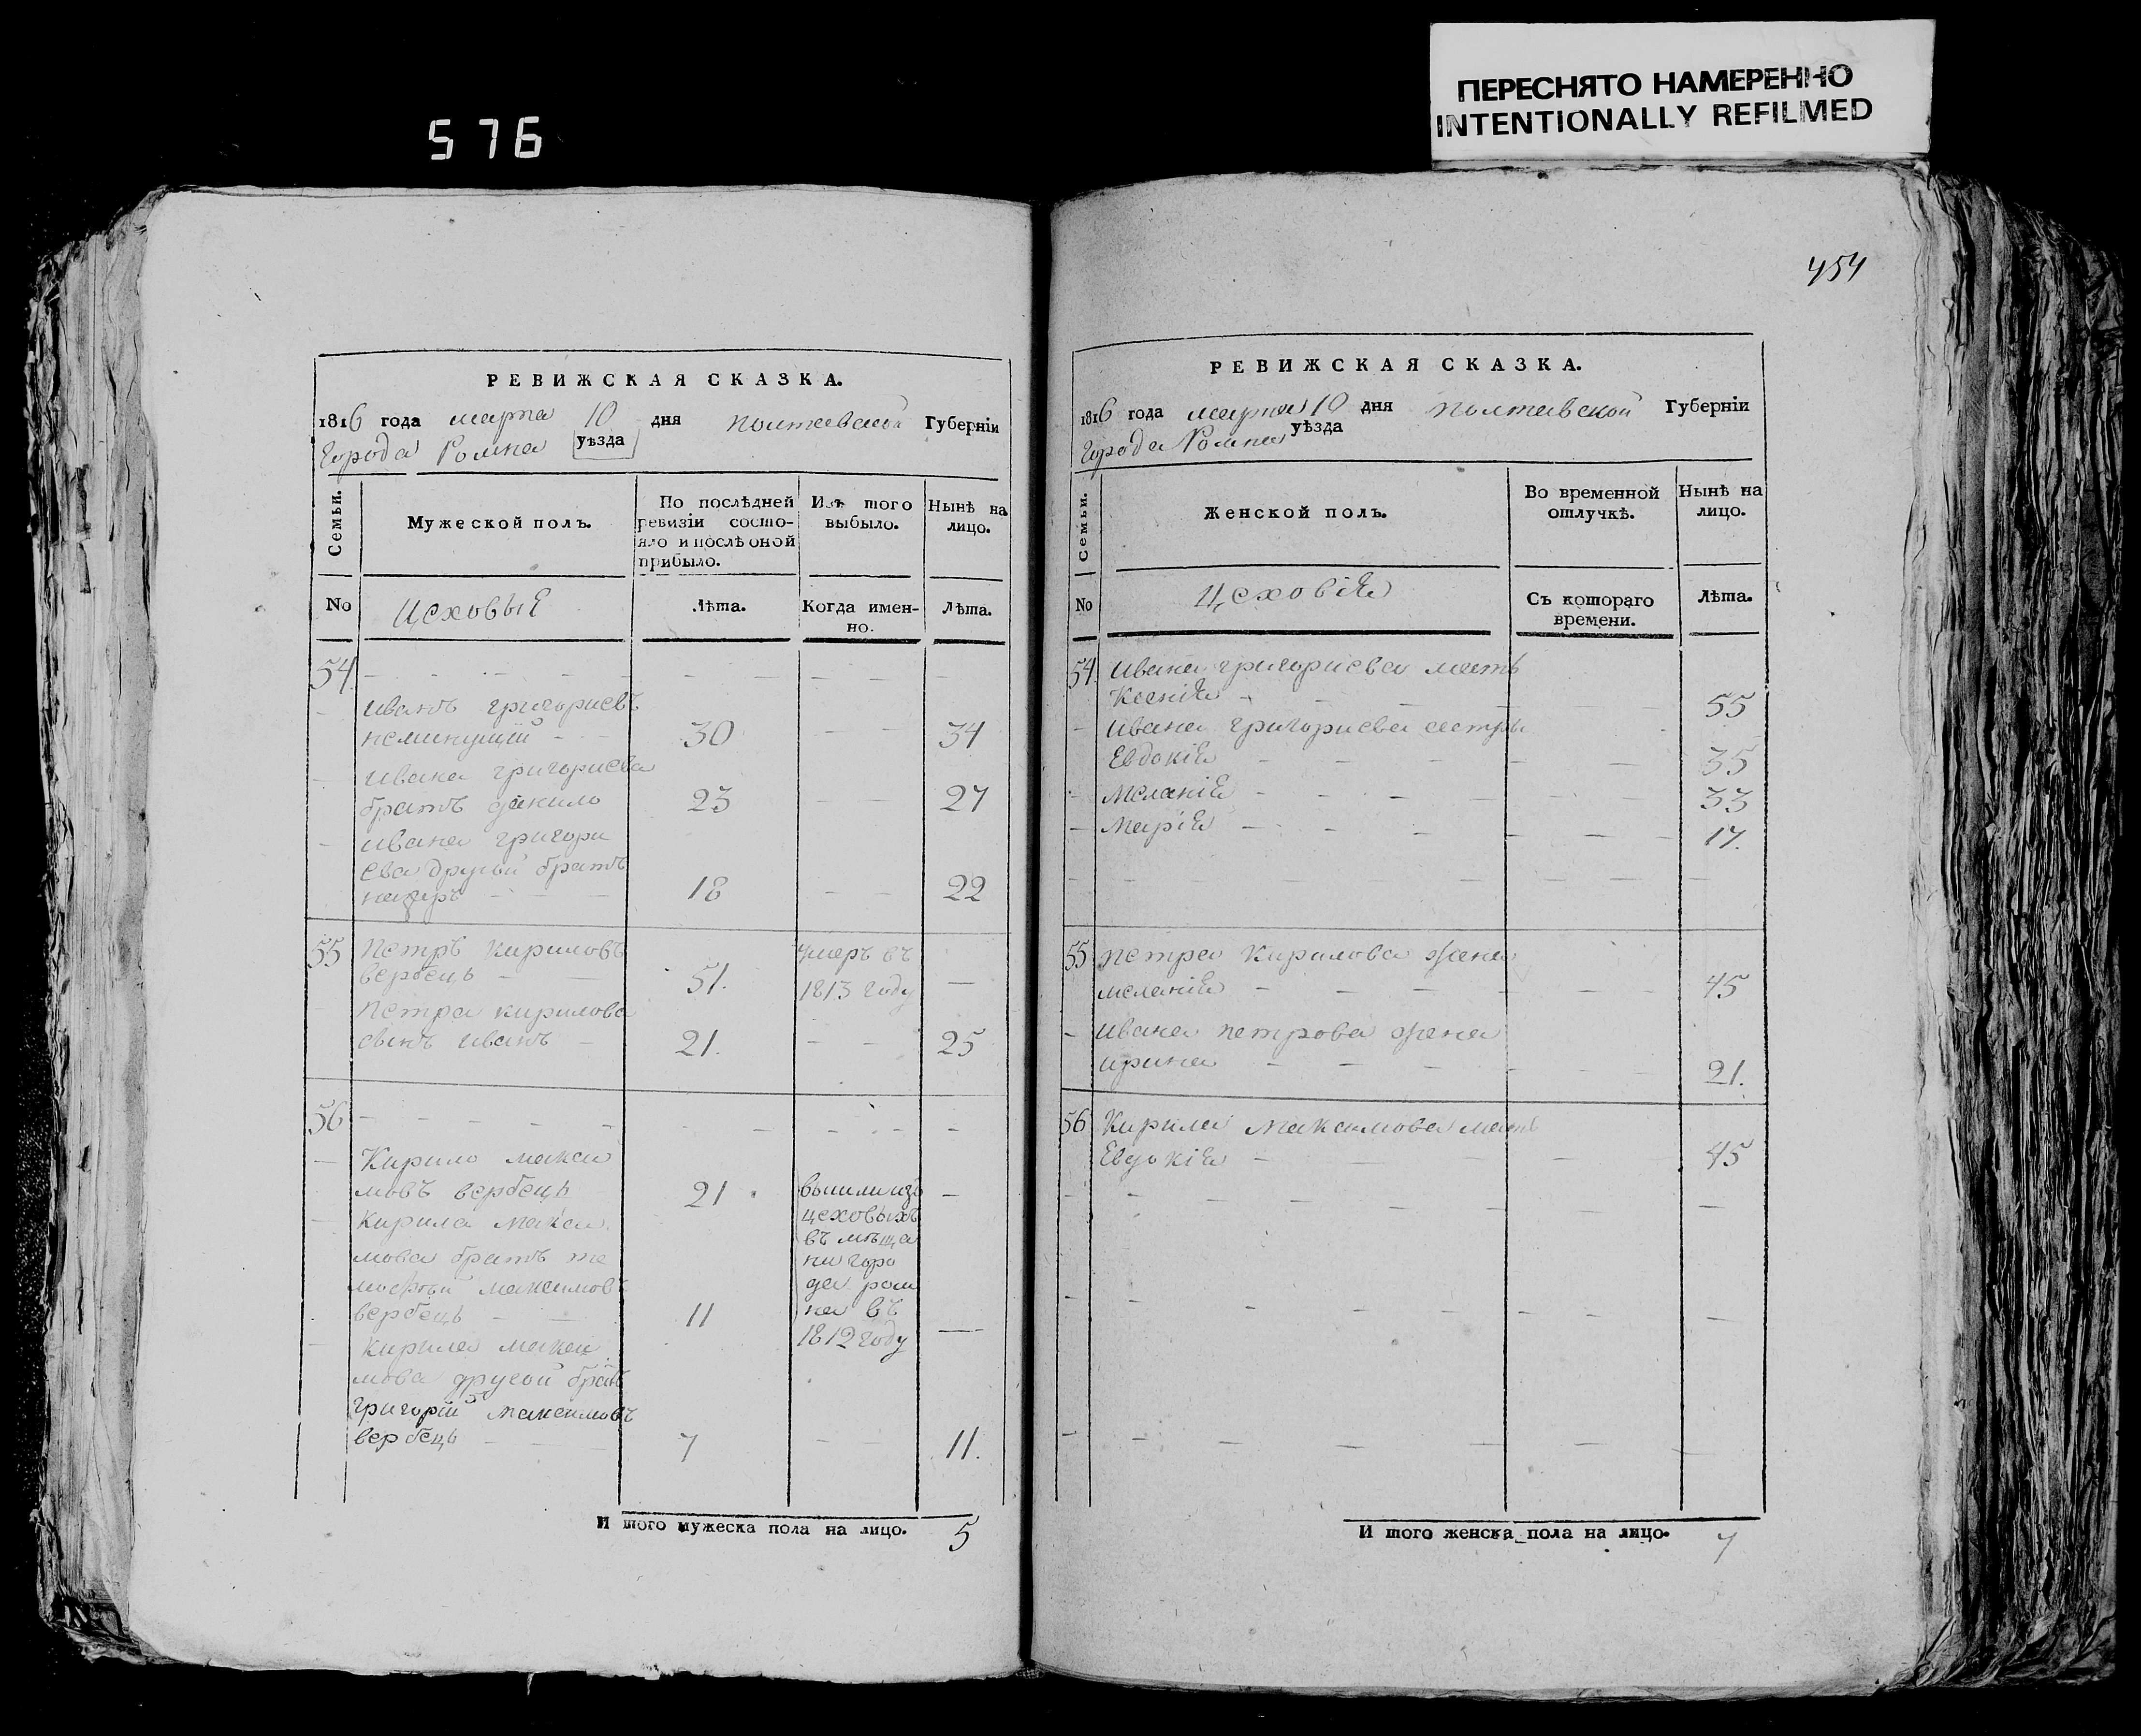 ПЕРЕСНЯТО НАМЕРЕННО
INTENTIONALLY REFILMED
576
454
РЕВИЖСКАЯ СКАЗКА.
1816 года марта 10 дня полтавской Губерніи
Города Ромна уѣзда
Семьи.
Мужеской полъ.
По послѣдней
ревизіи состо-
яло и послѣ оной
прибыло.
Изъ того
выбыло.
Нынѣ на
лицо.
No
цеховыя
Лѣта.
Когда имен-
но.
Лѣта.
54
иванъ григориевъ
неминущій 30 34
ивана григориева
братъ данило 23 27
ивана григори
ева другой братъ
назаръ 18 22
55 Петръ кириловъ умеръ въ
вербець 51. 1813 году
петра кирилова
сынъ иванъ 21. 25
56
Кирило макси
мовъ вербець 21 вышли изъ
кирила макси цеховыхъ
мова братъ ти въ мѣща
мофтій максимовъ ни горо
вербець 11 да ром
на въ
кирила макси 1812 году
мова другой братъ
григорій максимовъ
вербець 7 11.
И того мужеска пола на лицо. 5
РЕВИЖСКАЯ СКАЗКА.
1816 года марта 10 дня полтавской Губерніи
Города Ромна уѣзда
Семьи.
Женской полъ.
Во временной
отлучкѣ.
Нынѣ на
лицо.
No
цеховія
Съ котораго
времени.
Лѣта.
54 ивана григориева мать
Ксенія 55
ивана григориева сестры
Евдокія 35
Меланія 33
Марія 17.
55 петра кирилова жена
меланія 45
ивана петрова жена
ирина 21.
56 Кирила максимова мать
Евдокія 45
И того женска пола на лицо. 7